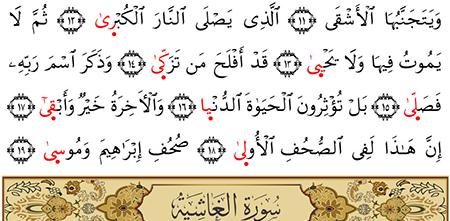 وَيَتَجَنَّبُهَا ٱلْأَشْقَى ﴿١١﴾ ٱلَّذِى يَصْلَى ٱلنَّارَ ٱلْكُبْرَىٰ ﴿١٢﴾ ثُمَّ لَا
يَمُوتُ فِيهَا وَلَا يَحْيَىٰ ﴿١٣﴾ قَدْ أَفْلَحَ مَن تَزَكَّىٰ ﴿١٤﴾ وَذَكَرَ ٱسْمَ رَبِّهِۦ
فَصَلَّىٰ ﴿١٥﴾ بَلْ تُؤْثِرُونَ ٱلْحَيَوٰةَ ٱلدُّنْيَا ﴿١٦﴾ وَٱلْأَخِرَةُ خَيْرٌ وَأَبْقَىٰٓ ﴿١٧﴾
إِنَّ هَٰذَا لَفِى ٱلصُّحُفِ ٱلْأُولَىٰ ﴿١٨﴾ صُحُفِ إِبْرَاهِيمَ وَمُوسَىٰ ﴿١٩﴾
سُورَةُ الغَاشِيَةِ